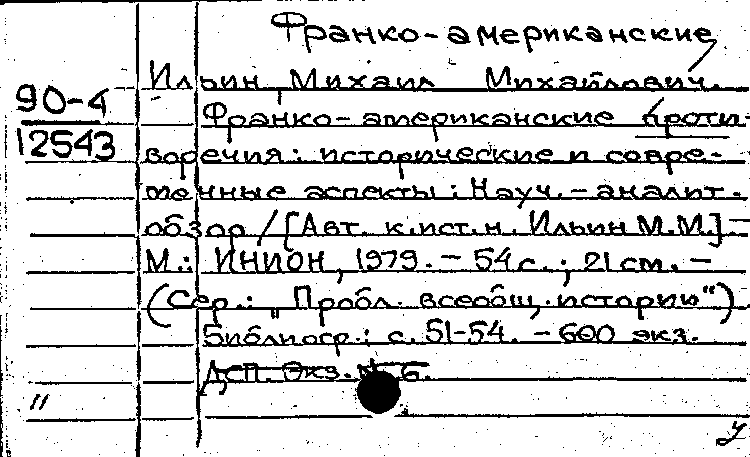 Франко-американские
Ильин, Михаил Михайлович.
90-4
12543
Франко-американские проти-
воречия: исторические и совре-
менные аспекты: Науч.-аналит.
обзор / [Авт. к.ист.н. Ильин М.М.] –
М.: ИНИОН, 1979. – 54 с.; 21 см. –
(Сер.: „Пробл. всеобщ. истории“)
Библиогр.: с. 51-54. – 600 экз.
ДСП. Экз. № 6.
"
у